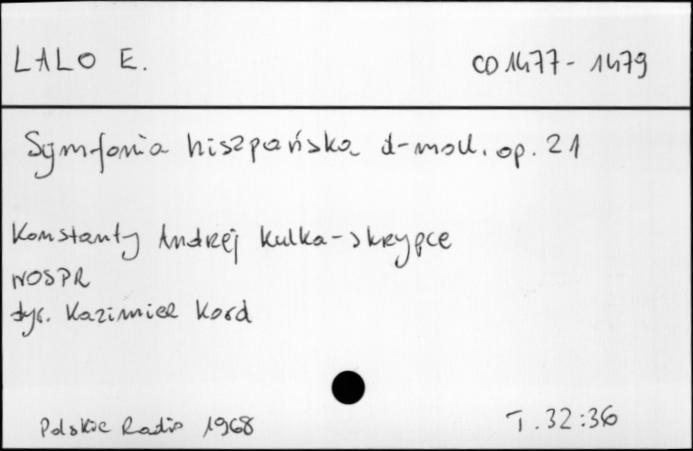 LALO E. CD 1477-1479
Symfonia hiszpańska d-moll. op. 21
Konstanty Andrzej Kulka-skrzypce
WOSPR
dyr. Kazimierz Kord
Polskie Radio 1968 T. 32:36